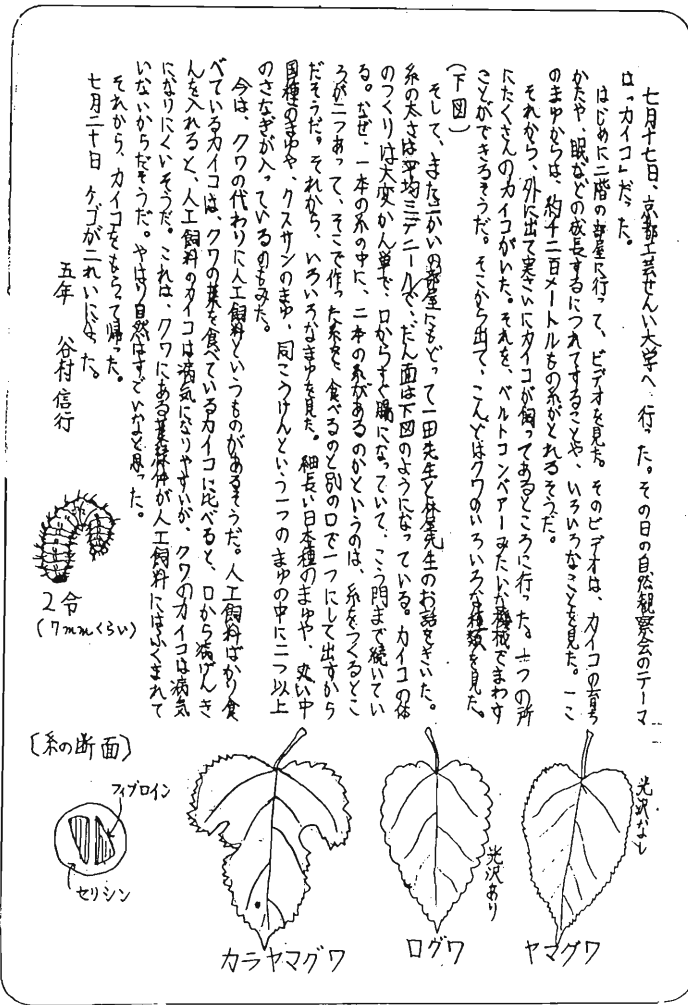 七月十七日、京都工芸せんい大学へ行った。その日の自然観察会のテーマ
は「カイコ」だった。
はじめに二階の部屋に行って、ビデオを見た。そのビデオは、カイコの育ち
かたや、眠などの成長するにつれてすることや、いろいろなことを見た。一こ
のまゆからは、約千二百メートルもの糸がとれるそうだ。
それから、外に出て実さいにカイコが飼ってあるところに行った。一つの所
にたくさんのカイコがいた。それを、ベルトコンベアーみたいな機械でまわす
ことができるそうだ。そこから出て、こんどはクワのいろいろな種類を見た。
(下図)
そして、また二かいの部屋にもどって一田先生と林屋先生のお話をきいた。
糸の太さは平均三デニールで、だん面は下図のようになっている。カイコの体
のつくりは大変かん単で、口からすぐ腸になっていて、こう門まで続いてい
る。なぜ、一本の糸の中に、二本の糸があるのかというのは、糸をつくるとこ
ろが二つあって、そこで作った糸を、食べるのと別の口で一つにして出すから
だそうだ。それから、いろいろなまゆを見た。細長い日本種のまゆや、丸い中
国種のまゆや、クスサンのまゆ、同こうけんという一つのまゆの中に二つ以上
のさなぎが入っているのもみた。
今は、クワの代わりに人工飼料というものがあるそうだ。人工飼料ばかり食
べているカイコは、クワの葉を食べているカイコに比べると、口から病げんき
んを入れると、人工飼料のカイコは病気になりやすいが、クワのカイコは病気
になりにくいそうだ。これは、クワにある が人工飼料にはふくまれて
いないからだそうだ。やはり自然はすごいなと思った。
それから、カイコをもらって帰った。
七月二十日 ケゴが二れいになった。
五年 谷村信行
2令
(7mmくらい)
光沢なし
ヤマグワ
光沢あり
ログワ
カラヤマグワ
〔糸の断面〕
フィブロイン
セリシン